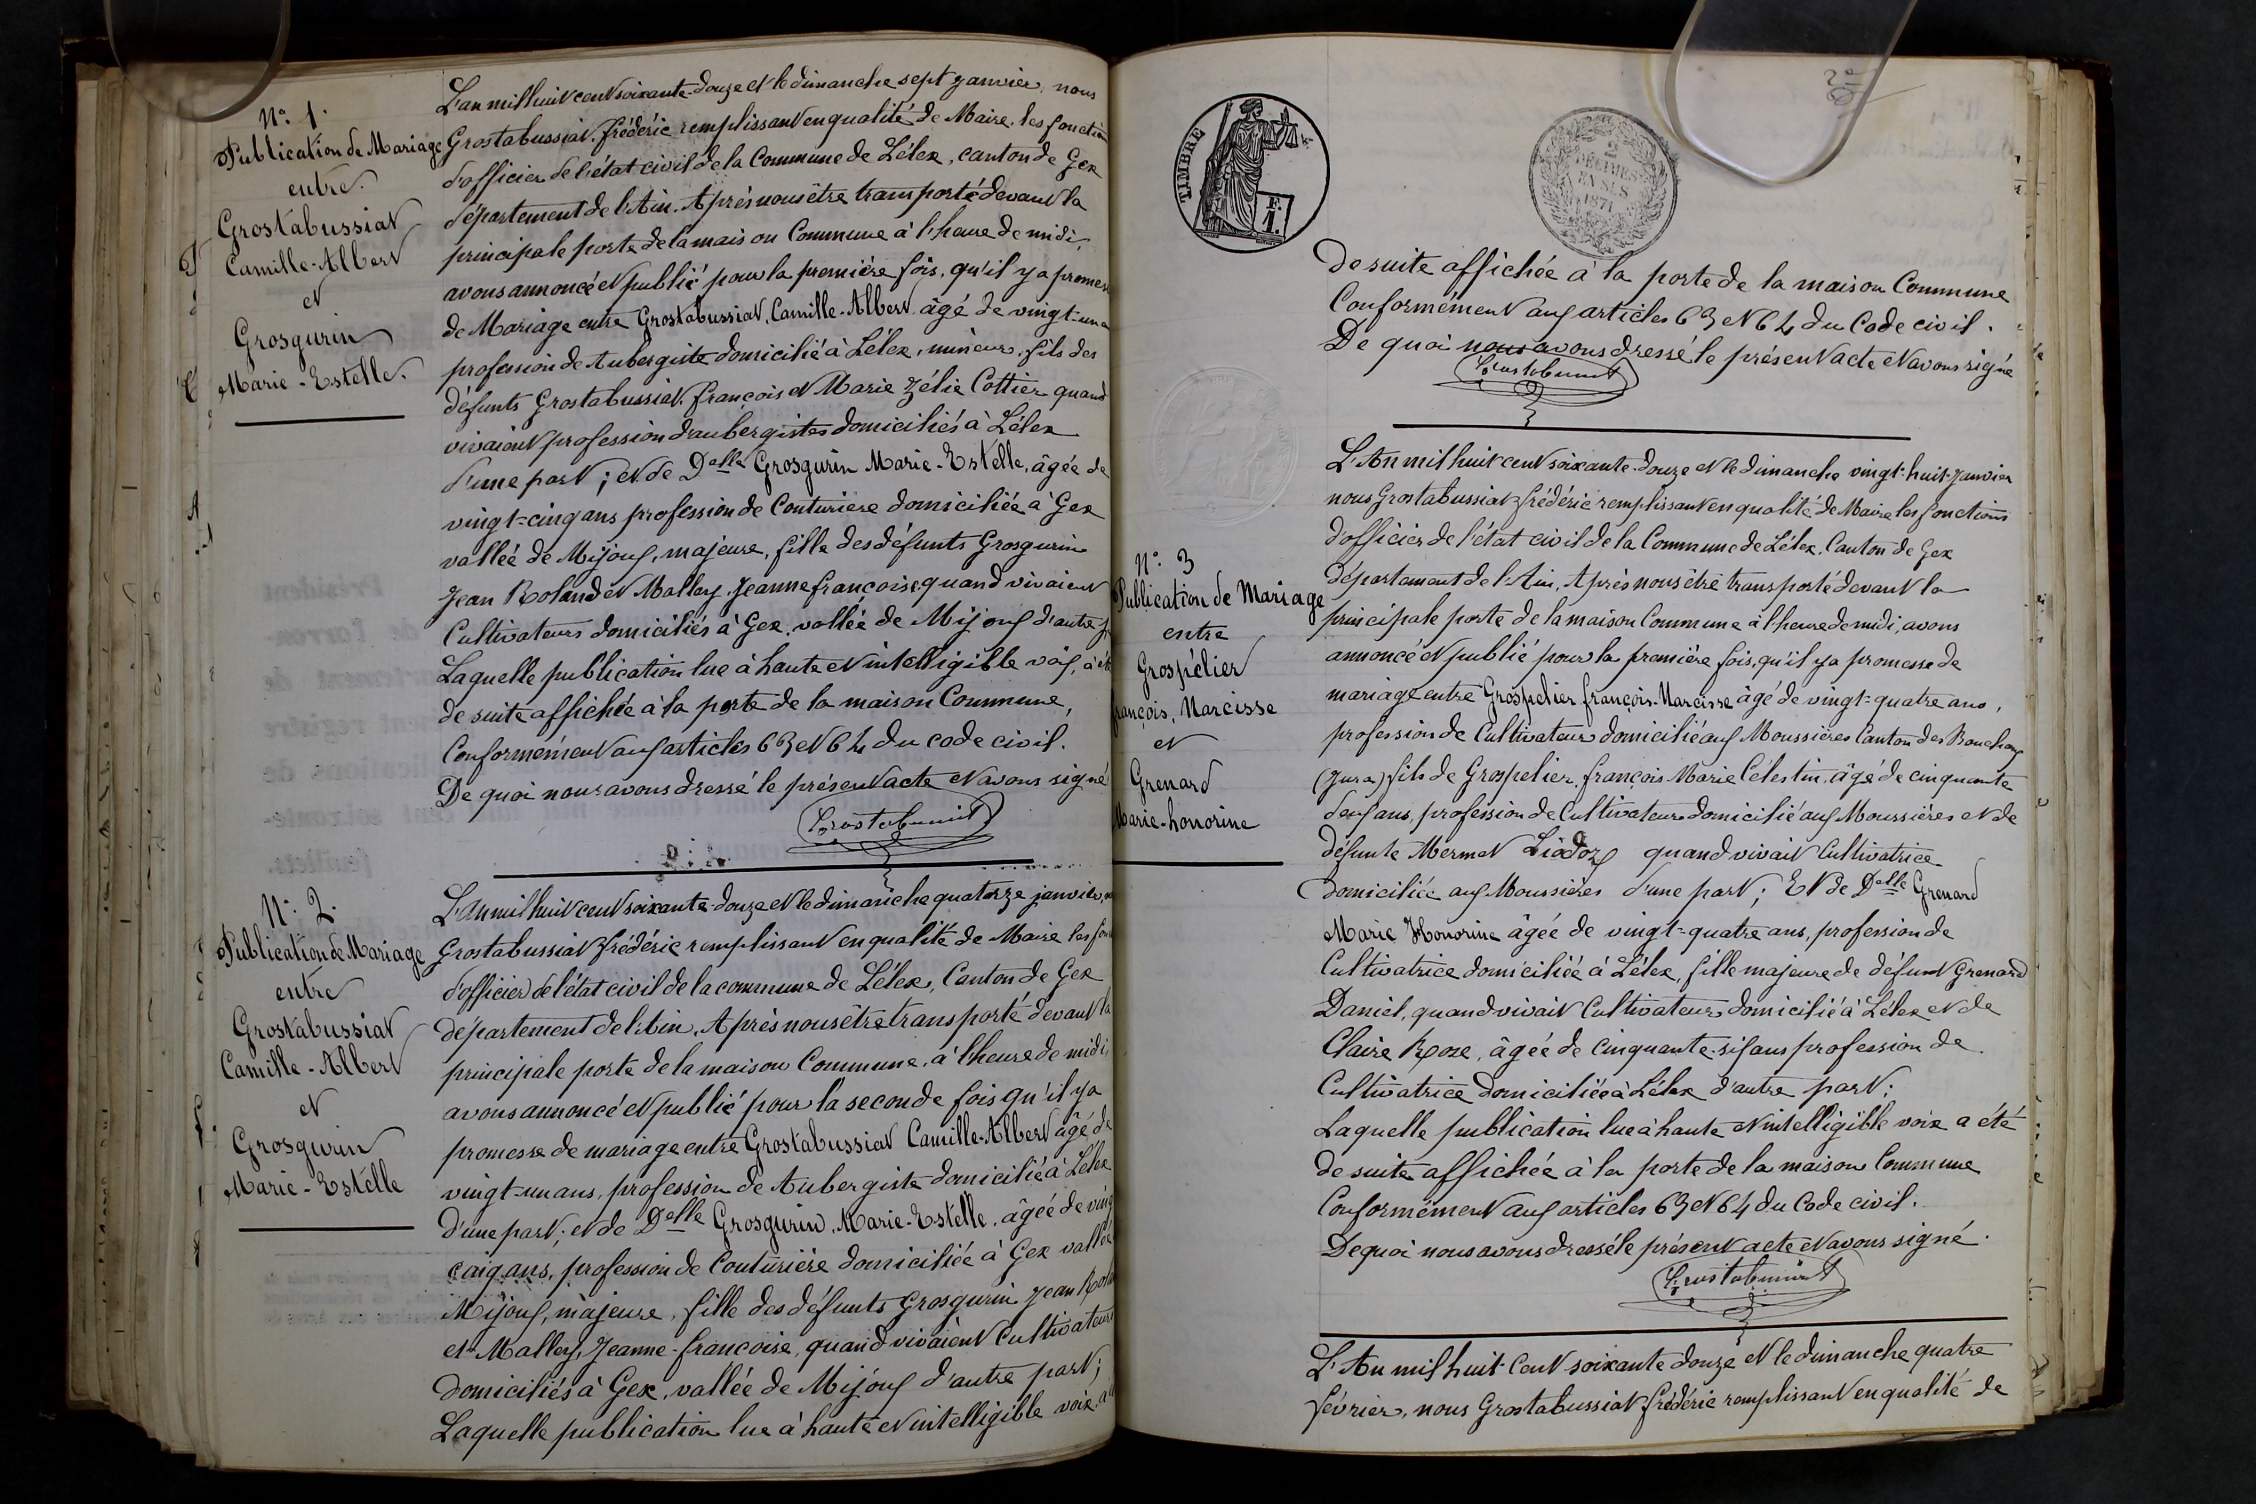 N° 1.
Publication de Mariage
entre
Grostabussiat
Camille-Albert
et
Grosgurin
Marie-Estelle.
L'an mil huit cent soixante-douze et le dimanche sept janvier, nous
Grostabussiat frédéric remplissant en qualité de Maire, les fonction
d'officier de l'état civil de la Commune de Lélex, canton de Gex
département de l'Ain. Après nous être transporté devant la
principale porte de la maison Commune à l'heure de midi,
avons annoncé et publié pour la première fois, qu'il y a promes
de Mariage entre Grostabussiat, Camille-Albert âgé de vingt-un a
profession de Aubergiste domicilié à Lélex, mineur, fils des
défunts Grostabussiat françois et Marie Zélie Cottier quand
vivaient profession d'aubergistes domiciliés à Lélex
d'une part ; et de Delle Grosgurin Marie-Estelle, âgée de
vingt-cinq ans profession de Couturiere domiciliée à Gex
vallée de Mijoux, majeure, fille des défunts Grosgurin
Jean Roland et Malley Jeanne françoise quand vivaient
Cultivateurs domiciliés à Gex, vallée de Mijoux d'autre p
Laquelle publication lue à haute et intelligible voix, à été
de suite affichée à la porte de la maison Commune,
Conformément aux articles 63 et 64 du code civil.
De quoi nous avons dressé le présent acte et avons signé
Grostabussiat
N° 2.
Publication de Mariage
entre
Grostabussiat
Camille-Albert
et
Grosgurin
Marie-Estelle
L'An mil huit cent soixante-douze et le dimanche quatorze janvier, n
Grostabussiat frédéric remplissant en qualité de Maire les fon
d'officier de l'état civil de la commune de Lélex, Canton de Gex
département de l'Ain, Après nous être transporté devant la
principale porte de la maison Commune, à l'heure de midi,
avons annoncé et publié pour la seconde fois qu'il y a
promesse de mariage entre Grostabussiat Camille-Albert âgé de
vingt-un ans, profession de Aubergiste domicilié à Lélex
d'une part; et de Delle Grosgurin, Marie-Estelle, âgée de ving
cinq ans, profession de Couturière domiciliée à Gex vallée
Mijoux, majeure, fille des défunts Grosgurin Jean Rola
et Malley, Jeanne-françoise, quand vivaient Cultivateurs
domiciliés à Gex, vallée de Mijoux d'autre part;
Laquelle publication lue à haute et intelligible voix, a é
TIMBRE
F.
1.
2
DÉCIMES
EN SUS
1871
de suite affichée à la porte de la maison Commune
Conformément aux articles 63 et 64 du Code civil.
De quoi nous avons dressé le présent acte et avons signé
Grostabussiat
N° 3
Publication de Mariage
entre
Grospélier
françois, Narcisse
et
Grenard
Marie-honorine
L'An mil huit cent soixante-douze et le dimanche vingt-huit Janvier
nous Grostabussiat frédéric remplissant en qualité de Maire les fonctions
d'officier de l'état civil de la Commune de Lélex, Canton de Gex
département de l'Ain, Après nous être transporté devant la
principale porte de la maison Commune à l'heure de midi, avons
annoncé et publié pour la première fois, qu'il y a promesse de
mariage entre Grospelier françois Narcisse âgé de vingt-quatre ans,
profession de Cultivateur domicilié aux Moussières Canton des Bouchoux
(Jura) fils de Grospelier, françois Marie Célestin, âgé de cinquante
deux ans, profession de Cultivateur domicilié aux Moussières et de
défunte Mermet Liodoz quand vivait Cultivatrice
domiciliée aux Moussières d'une part ; Et de Delle Grenard
Marie Honorine âgée de vingt-quatre ans, profession de
Cultivatrice domiciliée à Lélex, fille majeure de défunt Grenard
Daniel, quand vivait Cultivateur domicilié à Lélex et de
Claire Roze, âgée de Cinquante-six ans profession de
Cultivatrice domiciliée à Lélex d'autre part;
Laquelle publication lue à haute et intelligible voix a été
de suite affichée à la porte de la maison Commune
Conformément aux articles 63 et 64 du Code civil.
De quoi nous avons dressé le présent acte et avons signé.
Grostabussiat
L'An mil huit Cent soixante douze et le dimanche quatre
février, nous Grostabussiat frédéric remplissant en qualité de